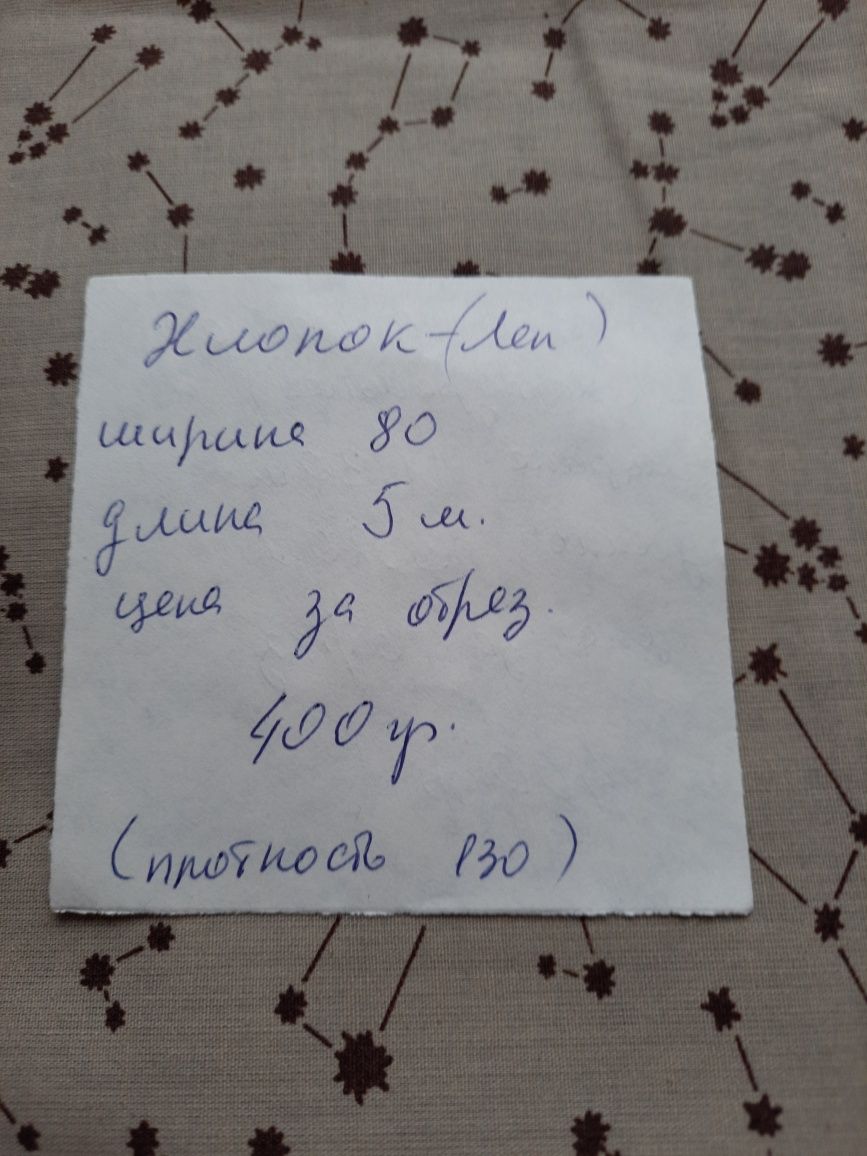 Хлопок-(Лен)
ширина 80
длина 5 м.
цена за обрез.
400 гр.
(плотность 130)